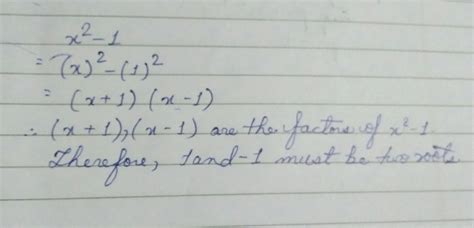 x² - 1
= (x)² - (1)²
= (x+1) (x-1)
∴ (x+1), (x-1) are the factors of x²-1.
Therefore, 1 and -1 must be two roots